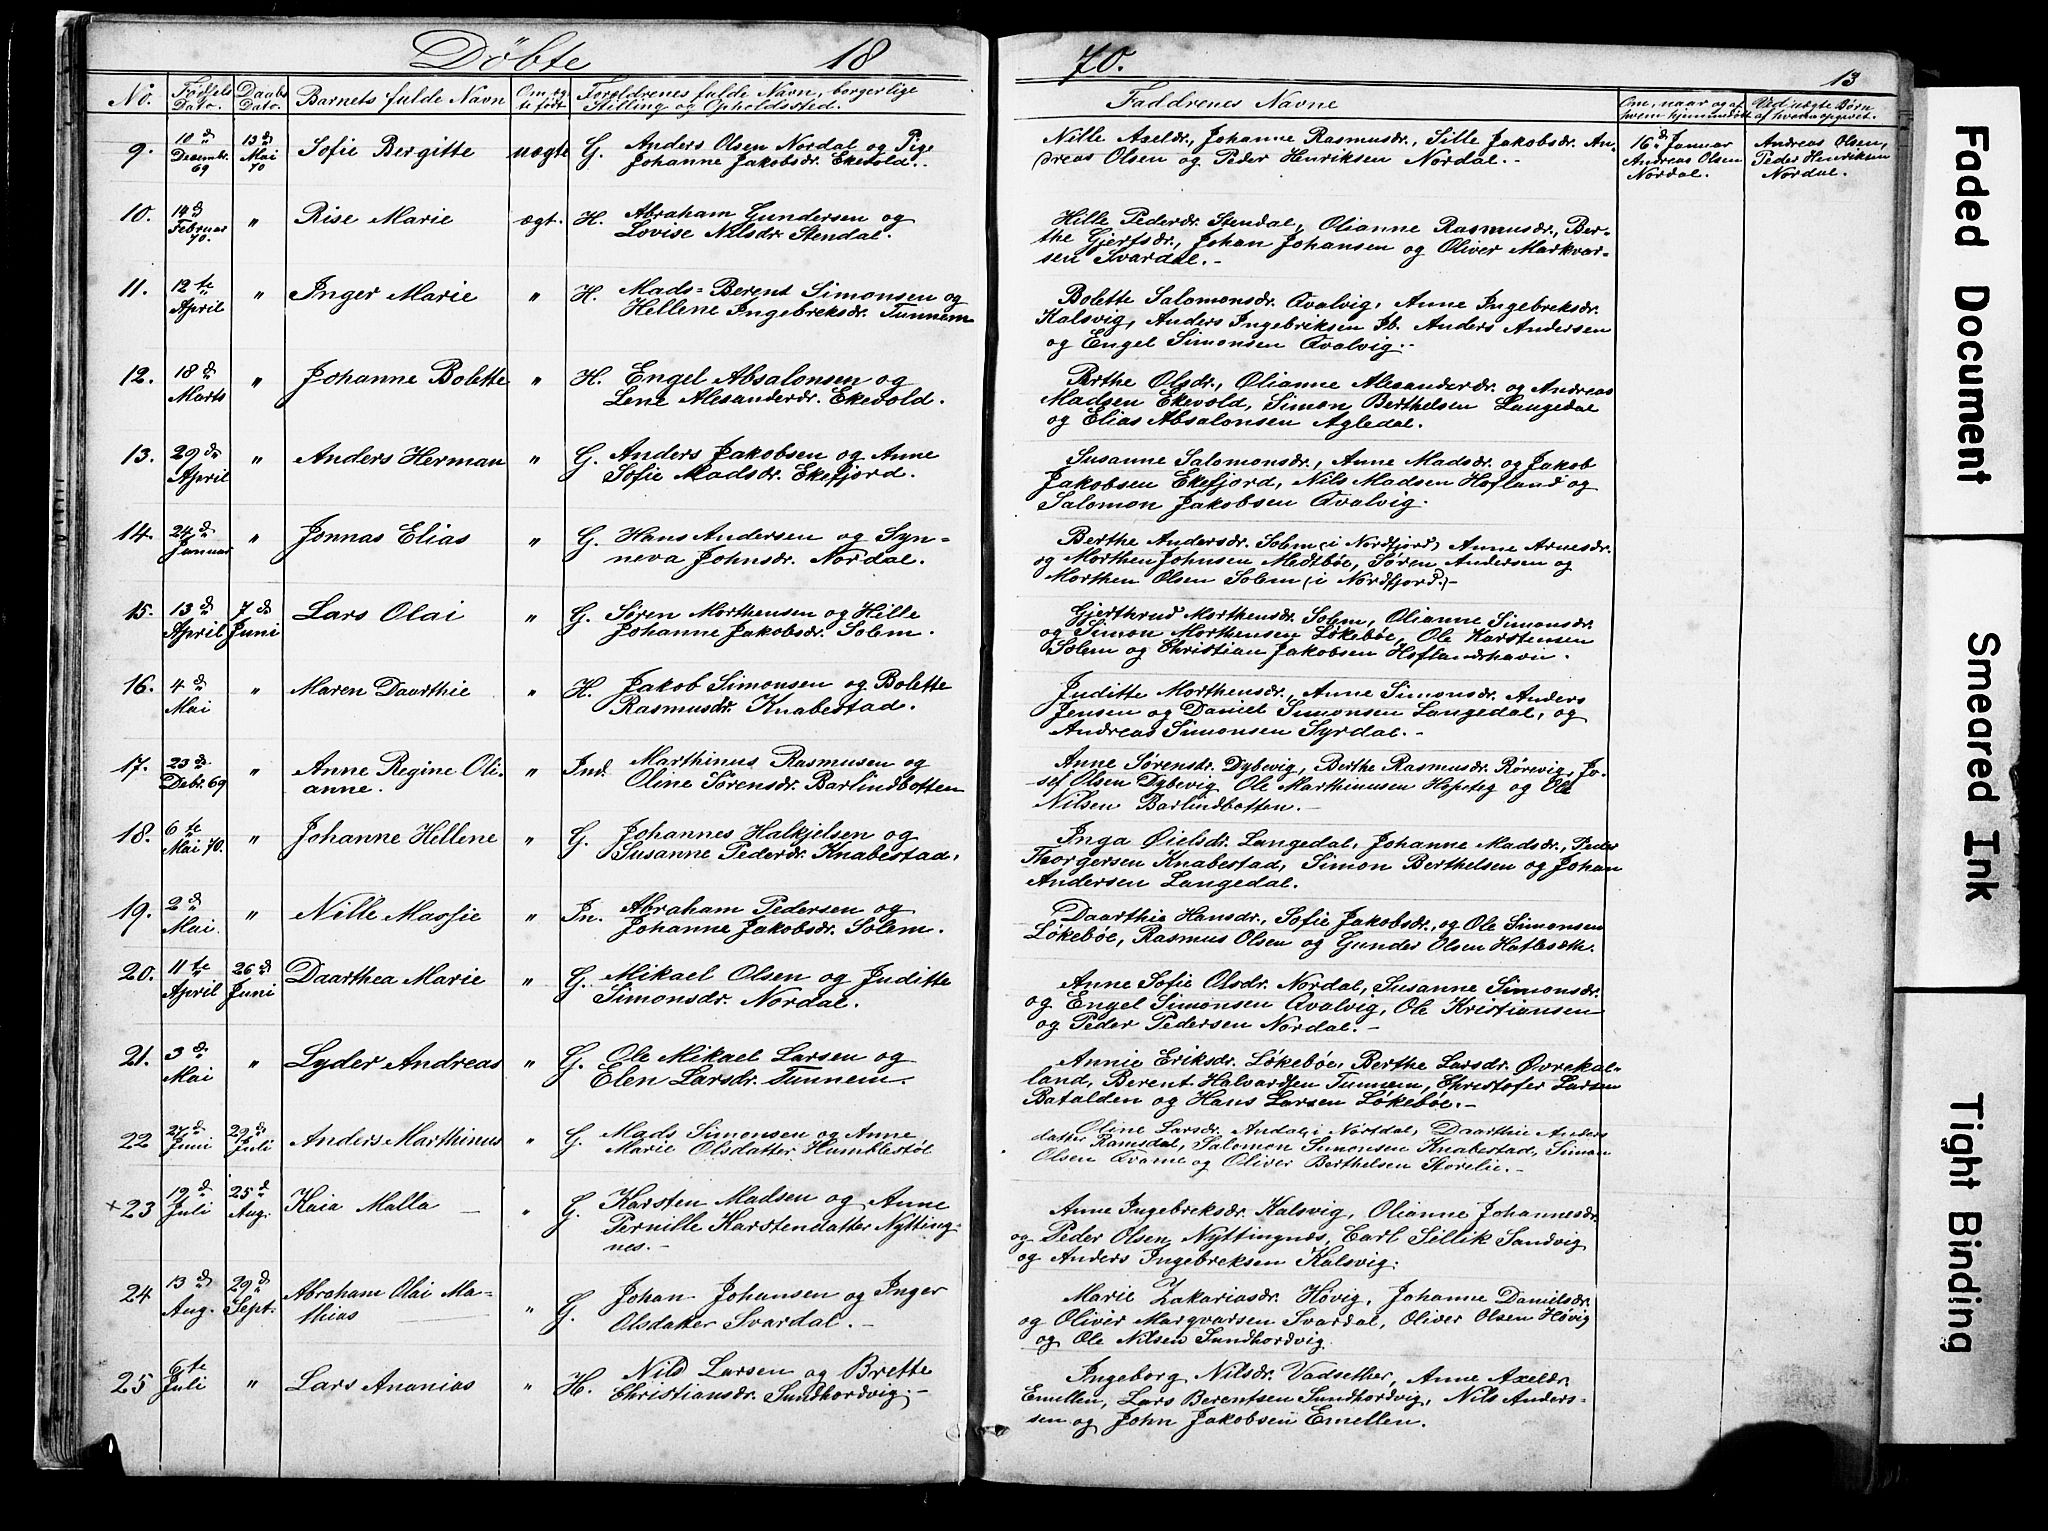 Döbte 18
70.
13
No. Födsels Dato. Daabs Dato. Barnets fulde Navn Om ægte födt Foreldrenes fulde Navn, borgerlige Stilling og Opholdssted.
Faddrenes Navne
Om, naar og af hvem hjemmedöbt
Ved uægte Börn af hvem opgivet.
9. 10d Decembr. 69 13d Mai 70 Sofie Bergitte uægte G. Anders Olsen Nordal og Pige
Johanne Jakobsdr. Ekevold.
Nille Axeldr., Johanne Rasmusdr., Sille Jakobsdr. An-
dreas Olsen og Peder Henriksen Nordal.-
16d Januar
Andreas Olsen
Nordal.
Andreas Olsen,
Peder Henriksen
Nordal.
10. 14d Februar 70. " Rise Marie ægt. H. Abraham Gundersen og
Lovise Nilsdr. Stendal.
Hille Pederdr. Stendal, Olianne Rasmusdr., Ber-
the Gjertsdr., Johan Johansen og Oliver Markvar-
sen Svardal.-
11. 12te April " Inger Marie " H. Mads-Berent Simonsen og
Hellene Ingebreksdr. Tunnem
Bolette Salomonsdr. Qvalvig, Anne Ingebreksdr.
Kalsvig, Anders Ingebriksen Ib. Anders Andersen
og Engel Simonsen Qvalvig.-
12. 18d Marts " Johanne Bolette " H. Engel Absalonsen og
Lene Alexanderdr. Ekevold.
Berthe Olsdr., Olianne Alexanderdr. og Andreas
Madsen Ekevold, Simon Berthelsen Langedal
og Elias Absalonsen Agledal.
13. 29d April " Anders Herman " G. Anders Jakobsen og Anne
Sofie Madsdr. Ekefjord.
Susanne Salomonsdr., Anne Madsdr. og Jakob
Jakobsen Ekefjord, Nils Madsen Hofland og
Salomon Jakobsen Qvalvig.
14. 24d Januar " Jonnas Elias " G. Hans Andersen og Syn-
neva Johnsdr. Nordal.
Berthe Andersdr. Solem (i Nordfjord) Anne Arnesdr.
og Morthen Johnsen Medtböe, Sören Andersen og
Morthen Olsen Solem (i Nordfjord.)-
15. 13d April 7d Juni Lars Olai " G. Sören Morthensen og Hille
Johanne Jakobsdr. Solem.
Gjerthrud Morthensdr. Solem, Olianne Simonsdr.
og Simon Morthensen Lökeböe, Ole Karstensen
Solem og Christian Jakobsen Hoflandshavn.
16. 4d Mai " Maren Daarthie " H. Jakob Simonsen og Bolette
Rasmusdr. Knabestad.
Juditte Morthensdr., Anne Simonsdr. Anders
Jensen og Daniel Simonsen Langedal, og
Andreas Simonsen Syrdal.-
17. 23d Debr. 69 " Anne Regine Oli-
anne. " Ind. Marthinus Rasmusen og
Oline Sörensdr. Barlindbotten
Anne Sörensdr. Dybevig, Berthe Rasmusdr. Rörevig, Jo-
sef Olsen Dybevig Ole Marthinusen Hopeteg og Ole
Nilsen Barlindbotten.-
18. 6te Mai 70. " Johanne Hellene " G. Johannes Halkjelsen og
Susanne Pederdr. Knabestad.
Inga Öielsdr. Langedal, Johanne Madsdr., Peder
Thorgersen Knabestad, Simon Berthelsen og Johan
Andersen Langedal.
19. 2d Mai. " Nille Massie " In. Abraham Pedersen og
Johanne Jakobsdr. Solem.
Daarthie Hansdr., Sofie Jakobsdr., og Ole Simonsen
Lökeböe, Rasmus Olsen og Gunder Olsen Hatlesæth.
20. 11te April 26d Juni Daarthea Marie " G. Mikael Olsen og Juditte
Simonsdr. Nordal.
Anne Sofie Olsdr. Nordal, Susanne Simonsdr.
og Engel Simonsen Qvalvig, Ole Kristiansen
og Peder Pedersen Nordal.-
21. 3d Mai " Lyder Andreas " G. Ole Mikael Larsen og
Elen Larsdr. Tunnem.
Annie Eriksdr. Lökeböe, Berthe Larsdr. Övrekal-
land, Berent Halvardsen Tunnem, Christofer Larsen
Batalden og Hans Larsen Lökeböe.-
22 27d Juni 29d Juli Anders Marthinus " G. Mads Simonsen og Anne
Marie Olsdatter Humblestöl
Oline Larsdr. Andal i Nordal, Daarthie Anders
datter Ramsdal, Salomon Simonsen Knabestad, Simon
Olsen Qvame og Oliver Berthelsen Storelie.-
+23 19d Juli 25d Aug. Kaia Malla " G. Karsten Madsen og Anne
Pernille Karstendatter Nytting-
nes.-
Anne Ingebreksdr. Kalsvig, Olianne Johannesdr.
og Peder Olsen Nyttingnæs, Carl Sellik Sandvig
og Anders Ingebreksen Kalsvig.
24 13d Aug. 29d Sept. Abraham Olai Ma-
thias " G. Johan Johansen og Inger
Olsdatter Svardal.-
Marie Zakariasdr. Hövig, Johanne Danielsdr.
og Oliver Marqvarsen Svardal, Oliver Olsen Hövig
og Ole Nilsen Sundhordvig
25 6te Juli " Lars Ananias " H. Nils Larsen og Brette
Christiansdr. Sundhordvig.-
Ingeborg Nilsdr. Vadsether, Anne Axeldr.
Emellen, Lars Berentsen Sundhordvig, Nils Anders-
sen og John Jakobsen Emellen.
Faded Document
Smeared Ink
Tight Binding